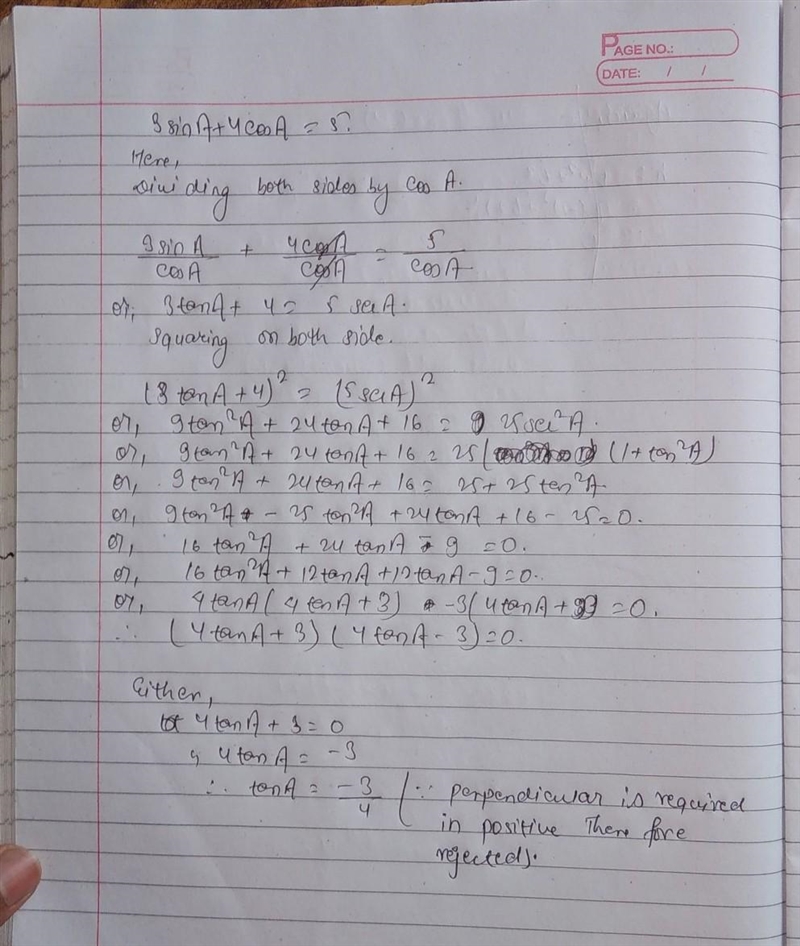 PAGE NO.:
DATE: / /
3 sin A + 4 cos A = 5.
Here,
Dividing both sides by cos A.
3 sin A / cos A + 4 cos A / cos A = 5 / cos A
or, 3 tan A + 4 = 5 sec A.
squaring on both side.
(3 tan A + 4)² = (5 sec A)²
or, 9 tan²A + 24 tan A + 16 = 25 sec²A.
or, 9 tan²A + 24 tan A + 16 = 25 (1 + tan²A)
or, 9 tan²A + 24 tan A + 16 = 25 + 25 tan²A.
or, 9 tan²A - 25 tan²A + 24 tan A + 16 - 25 = 0.
or, 16 tan²A + 24 tan A - 9 = 0.
or, 16 tan²A + 12 tan A + 12 tan A - 9 = 0.
or, 4 tan A (4 tan A + 3) -3 (4 tan A + 3) = 0.
∴ (4 tan A + 3) (4 tan A - 3) = 0.
Either,
4 tan A + 3 = 0
4 tan A = -3
∴ tan A = -3/4 (∵ perpendicular is required
in positive There fore
rejected).